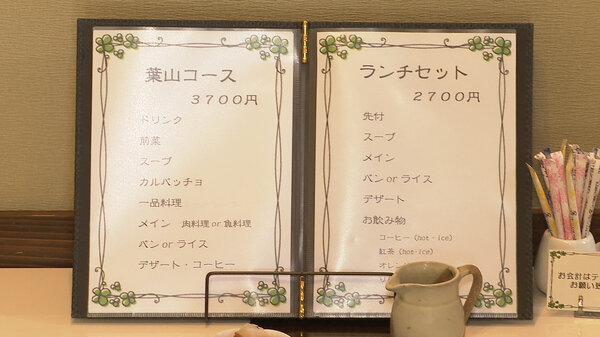 葉山コース
3700円
ドリンク
前菜
スープ
カルパッチョ
一品料理
メイン 肉料理 or 魚料理
パン or ライス
デザート・コーヒー
ランチセット
2700円
先付
スープ
メイン
パン or ライス
デザート
お飲み物
コーヒー (hot・ice)
紅茶 (hot・ice)
オレン
お会計はテ
お願い致